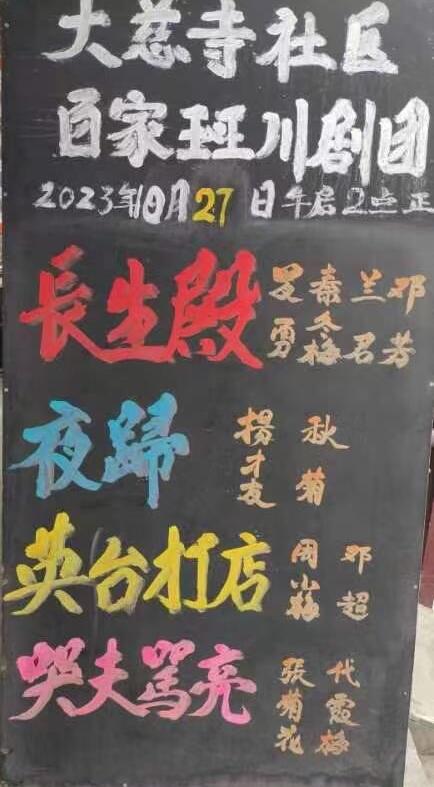 大慈寺社区
百家班川剧团
2023年10月27日午后2点正
長生殿 罗勇 秦冬梅 兰君 邓芳
夜歸 楊才友 秋菊
英台打店 周小梅 邓超
哭夫罵亮 張菊花 代霞梅